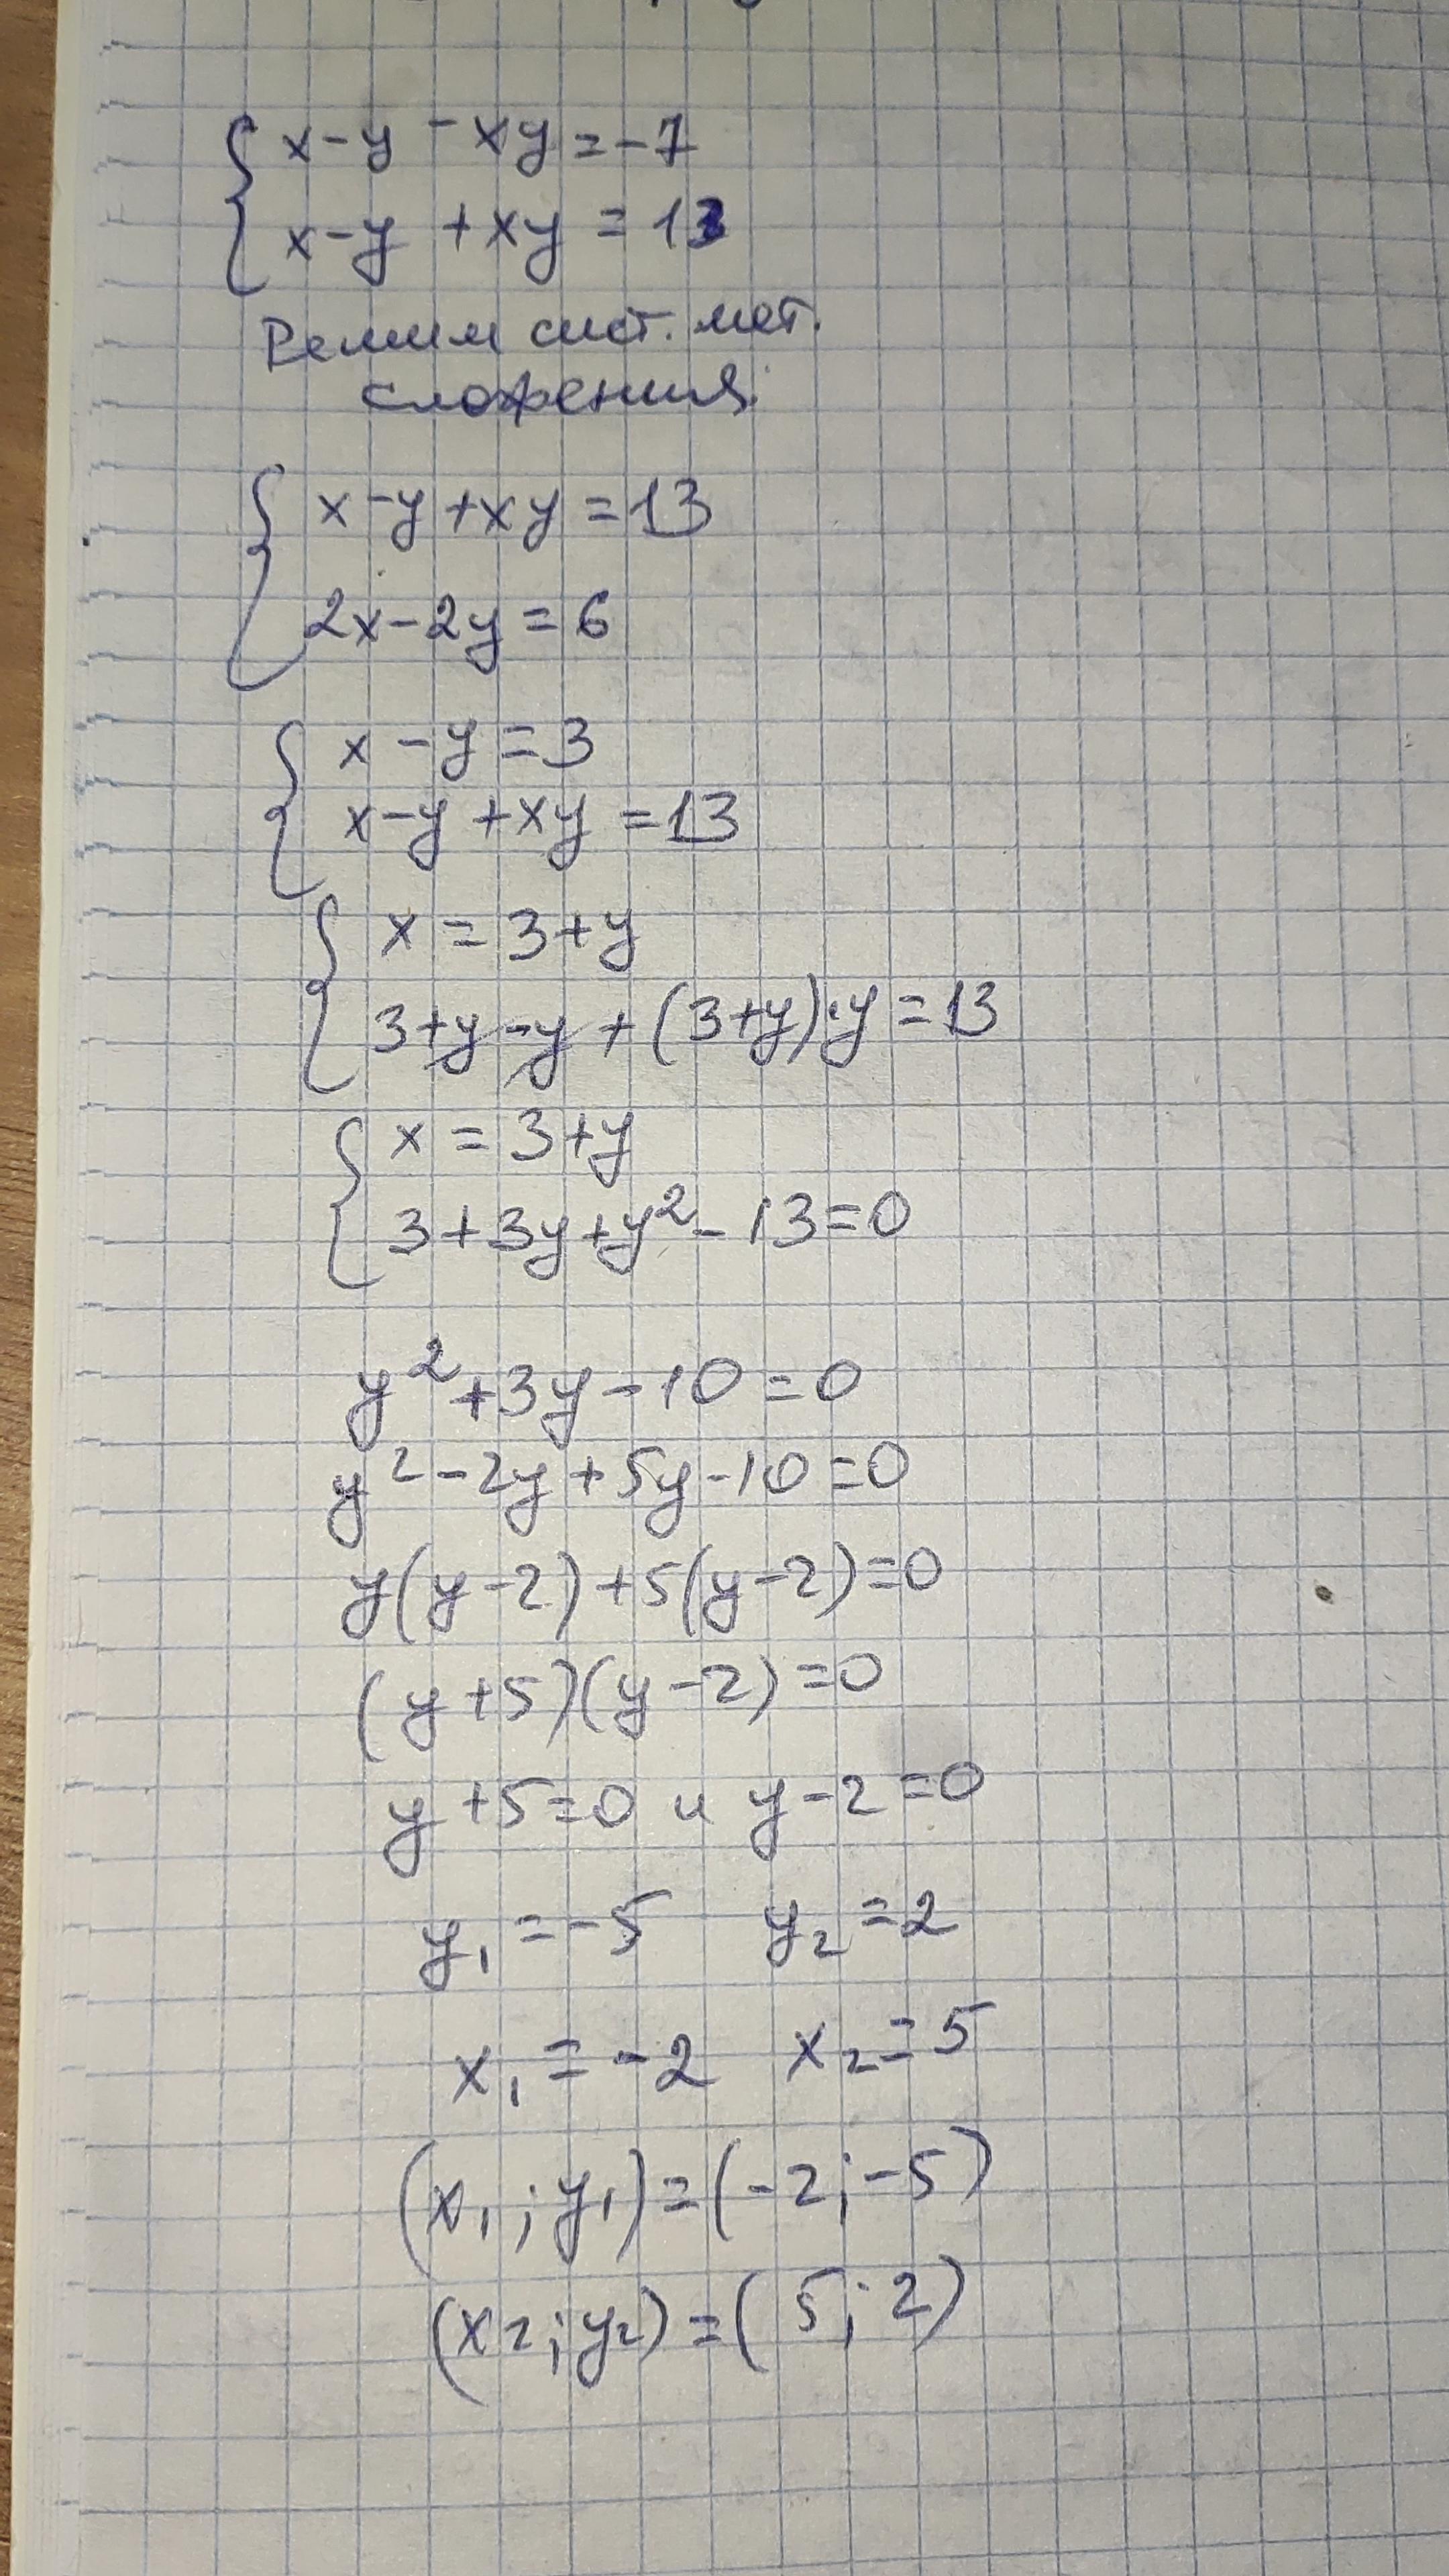 x-y-xy=-7
x-y+xy=13
Решим сист. мет.
сложения:
x-y+xy=13
2x-2y=6
x-y=3
x-y+xy=13
x=3+y
3+y-y+(3+y)·y=13
x=3+y
3+3y+y²-13=0
y²+3y-10=0
y²-2y+5y-10=0
y(y-2)+5(y-2)=0
(y+5)(y-2)=0
y+5=0 и y-2=0
y₁=-5 y₂=2
x₁=-2 x₂=5
(x₁;y₁)=(-2;-5)
(x₂;y₂)=(5;2)